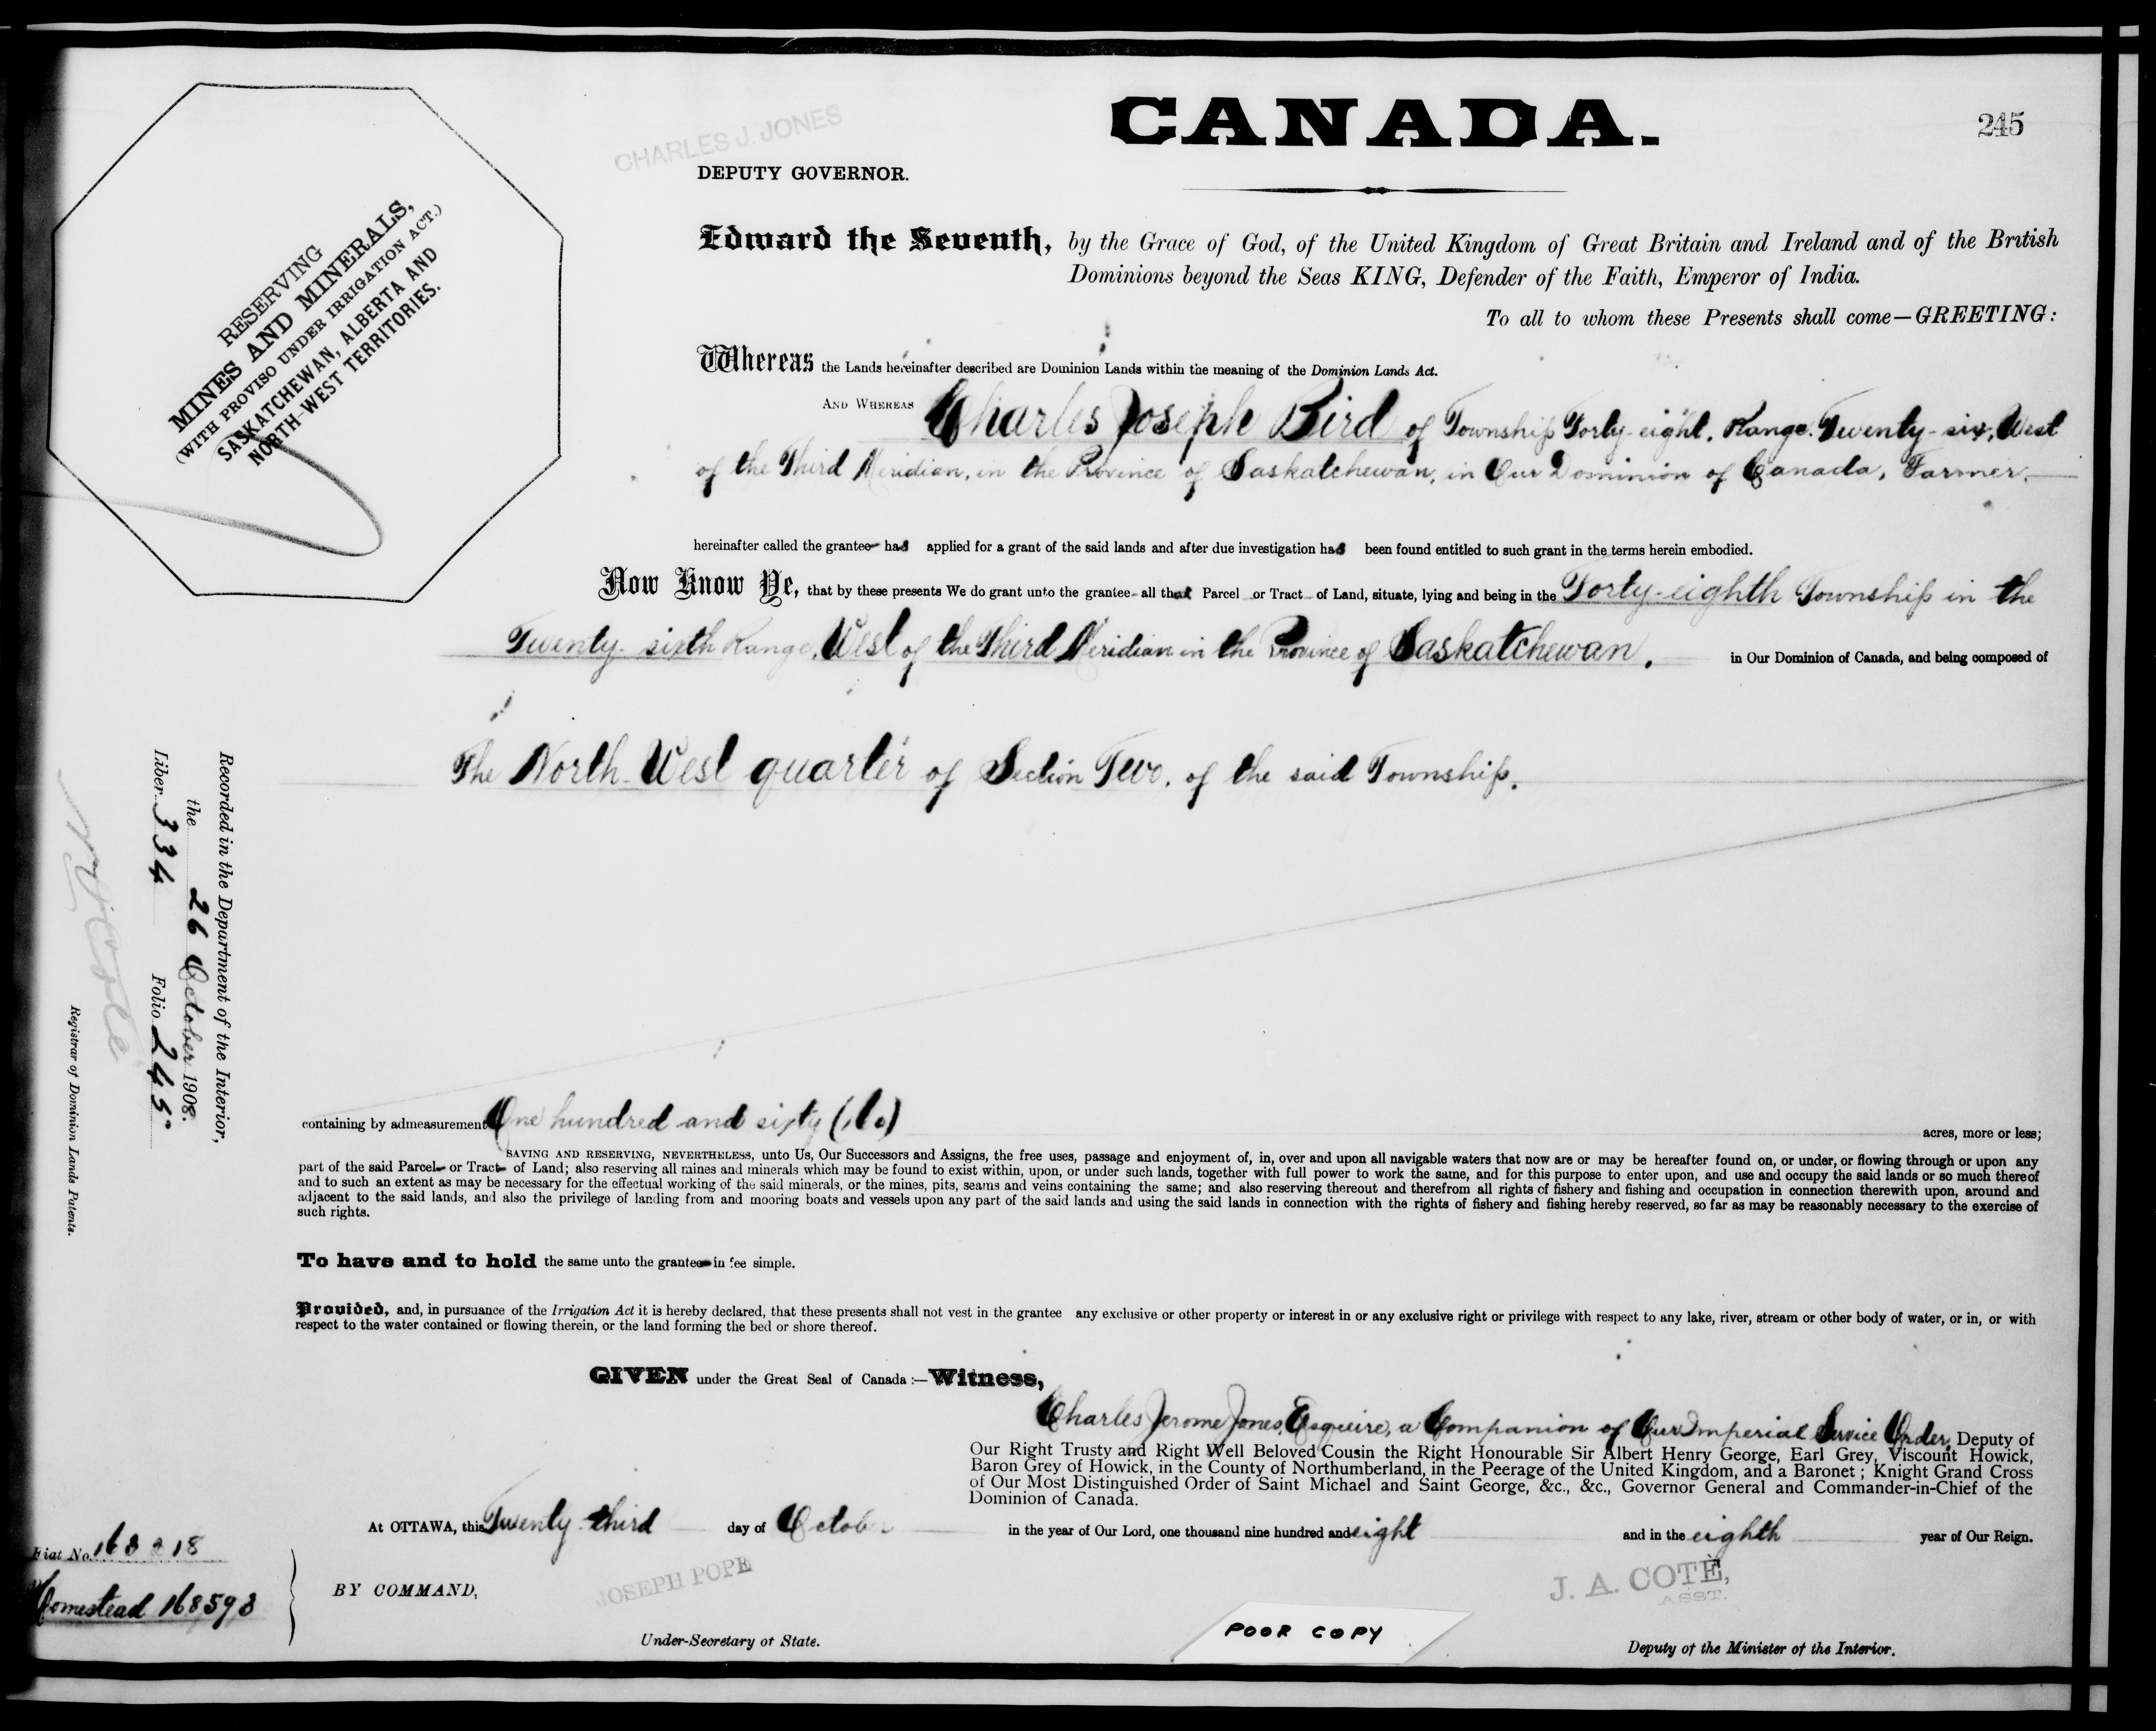 CANADA.
245
CHARLES J. JONES
DEPUTY GOVERNOR.
RESERVING
MINES AND MINERALS,
(WITH PROVISO UNDER IRRIGATION ACT.)
SASKATCHEWAN, ALBERTA AND
NORTH-WEST TERRITORIES.
Edward the Seventh, by the Grace of God, of the United Kingdom of Great Britain and Ireland and of the British
Dominions beyond the Seas KING, Defender of the Faith, Emperor of India.
To all to whom these Presents shall come—GREETING:
Whereas the Lands hereinafter described are Dominion Lands within the meaning of the Dominion Lands Act.
AND WHEREAS Charles Joseph Bird of Township Forty-eight, Range Twenty-six, West
of the Third Meridian, in the Province of Saskatchewan, in Our Dominion of Canada, Farmer.
hereinafter called the grantee has applied for a grant of the said lands and after due investigation has been found entitled to such grant in the terms herein embodied.
Now Know Ye, that by these presents We do grant unto the grantee all that Parcel or Tract of Land, situate, lying and being in the Forty-eighth Township in the
Twenty-sixth Range, West of the Third Meridian in the Province of Saskatchewan. in Our Dominion of Canada, and being composed of
The North West quarter of Section Two, of the said Township.
Recorded in the Department of the Interior,
the 26 October 1908.
Liber 334 Folio 245.
Registrar of Dominion Lands Patents.
containing by admeasurement One hundred and sixty (160) acres, more or less;
SAVING AND RESERVING, NEVERTHELESS, unto Us, Our Successors and Assigns, the free uses, passage and enjoyment of, in, over and upon all navigable waters that now are or may be hereafter found on, or under, or flowing through or upon any
part of the said Parcel or Tract of Land; also reserving all mines and minerals which may be found to exist within, upon, or under such lands, together with full power to work the same, and for this purpose to enter upon, and use and occupy the said lands or so much thereof
and to such an extent as may be necessary for the effectual working of the said minerals, or the mines, pits, seams and veins containing the same; and also reserving thereout and therefrom all rights of fishery and fishing and occupation in connection therewith upon, around and
adjacent to the said lands, and also the privilege of landing from and mooring boats and vessels upon any part of the said lands and using the said lands in connection with the rights of fishery and fishing hereby reserved, so far as may be reasonably necessary to the exercise of
such rights.
To have and to hold the same unto the grantee in fee simple.
Provided, and, in pursuance of the Irrigation Act it is hereby declared, that these presents shall not vest in the grantee any exclusive or other property or interest in or any exclusive right or privilege with respect to any lake, river, stream or other body of water, or in, or with
respect to the water contained or flowing therein, or the land forming the bed or shore thereof.
GIVEN under the Great Seal of Canada:—Witness,
Charles Jerome Jones, Esquire, a Companion of Our Imperial Service Order, Deputy of
Our Right Trusty and Right Well Beloved Cousin the Right Honourable Sir Albert Henry George, Earl Grey, Viscount Howick,
Baron Grey of Howick, in the County of Northumberland, in the Peerage of the United Kingdom, and a Baronet; Knight Grand Cross
of Our Most Distinguished Order of Saint Michael and Saint George, &c., &c., Governor General and Commander-in-Chief of the
Dominion of Canada.
At OTTAWA, this Twenty-third day of October in the year of Our Lord, one thousand nine hundred and eight and in the eighth year of Our Reign.
Fiat No. 163218
Homestead 168593
BY COMMAND,
JOSEPH POPE
Under-Secretary of State.
POOR COPY
J. A. COTÉ,
ASST.
Deputy of the Minister of the Interior.